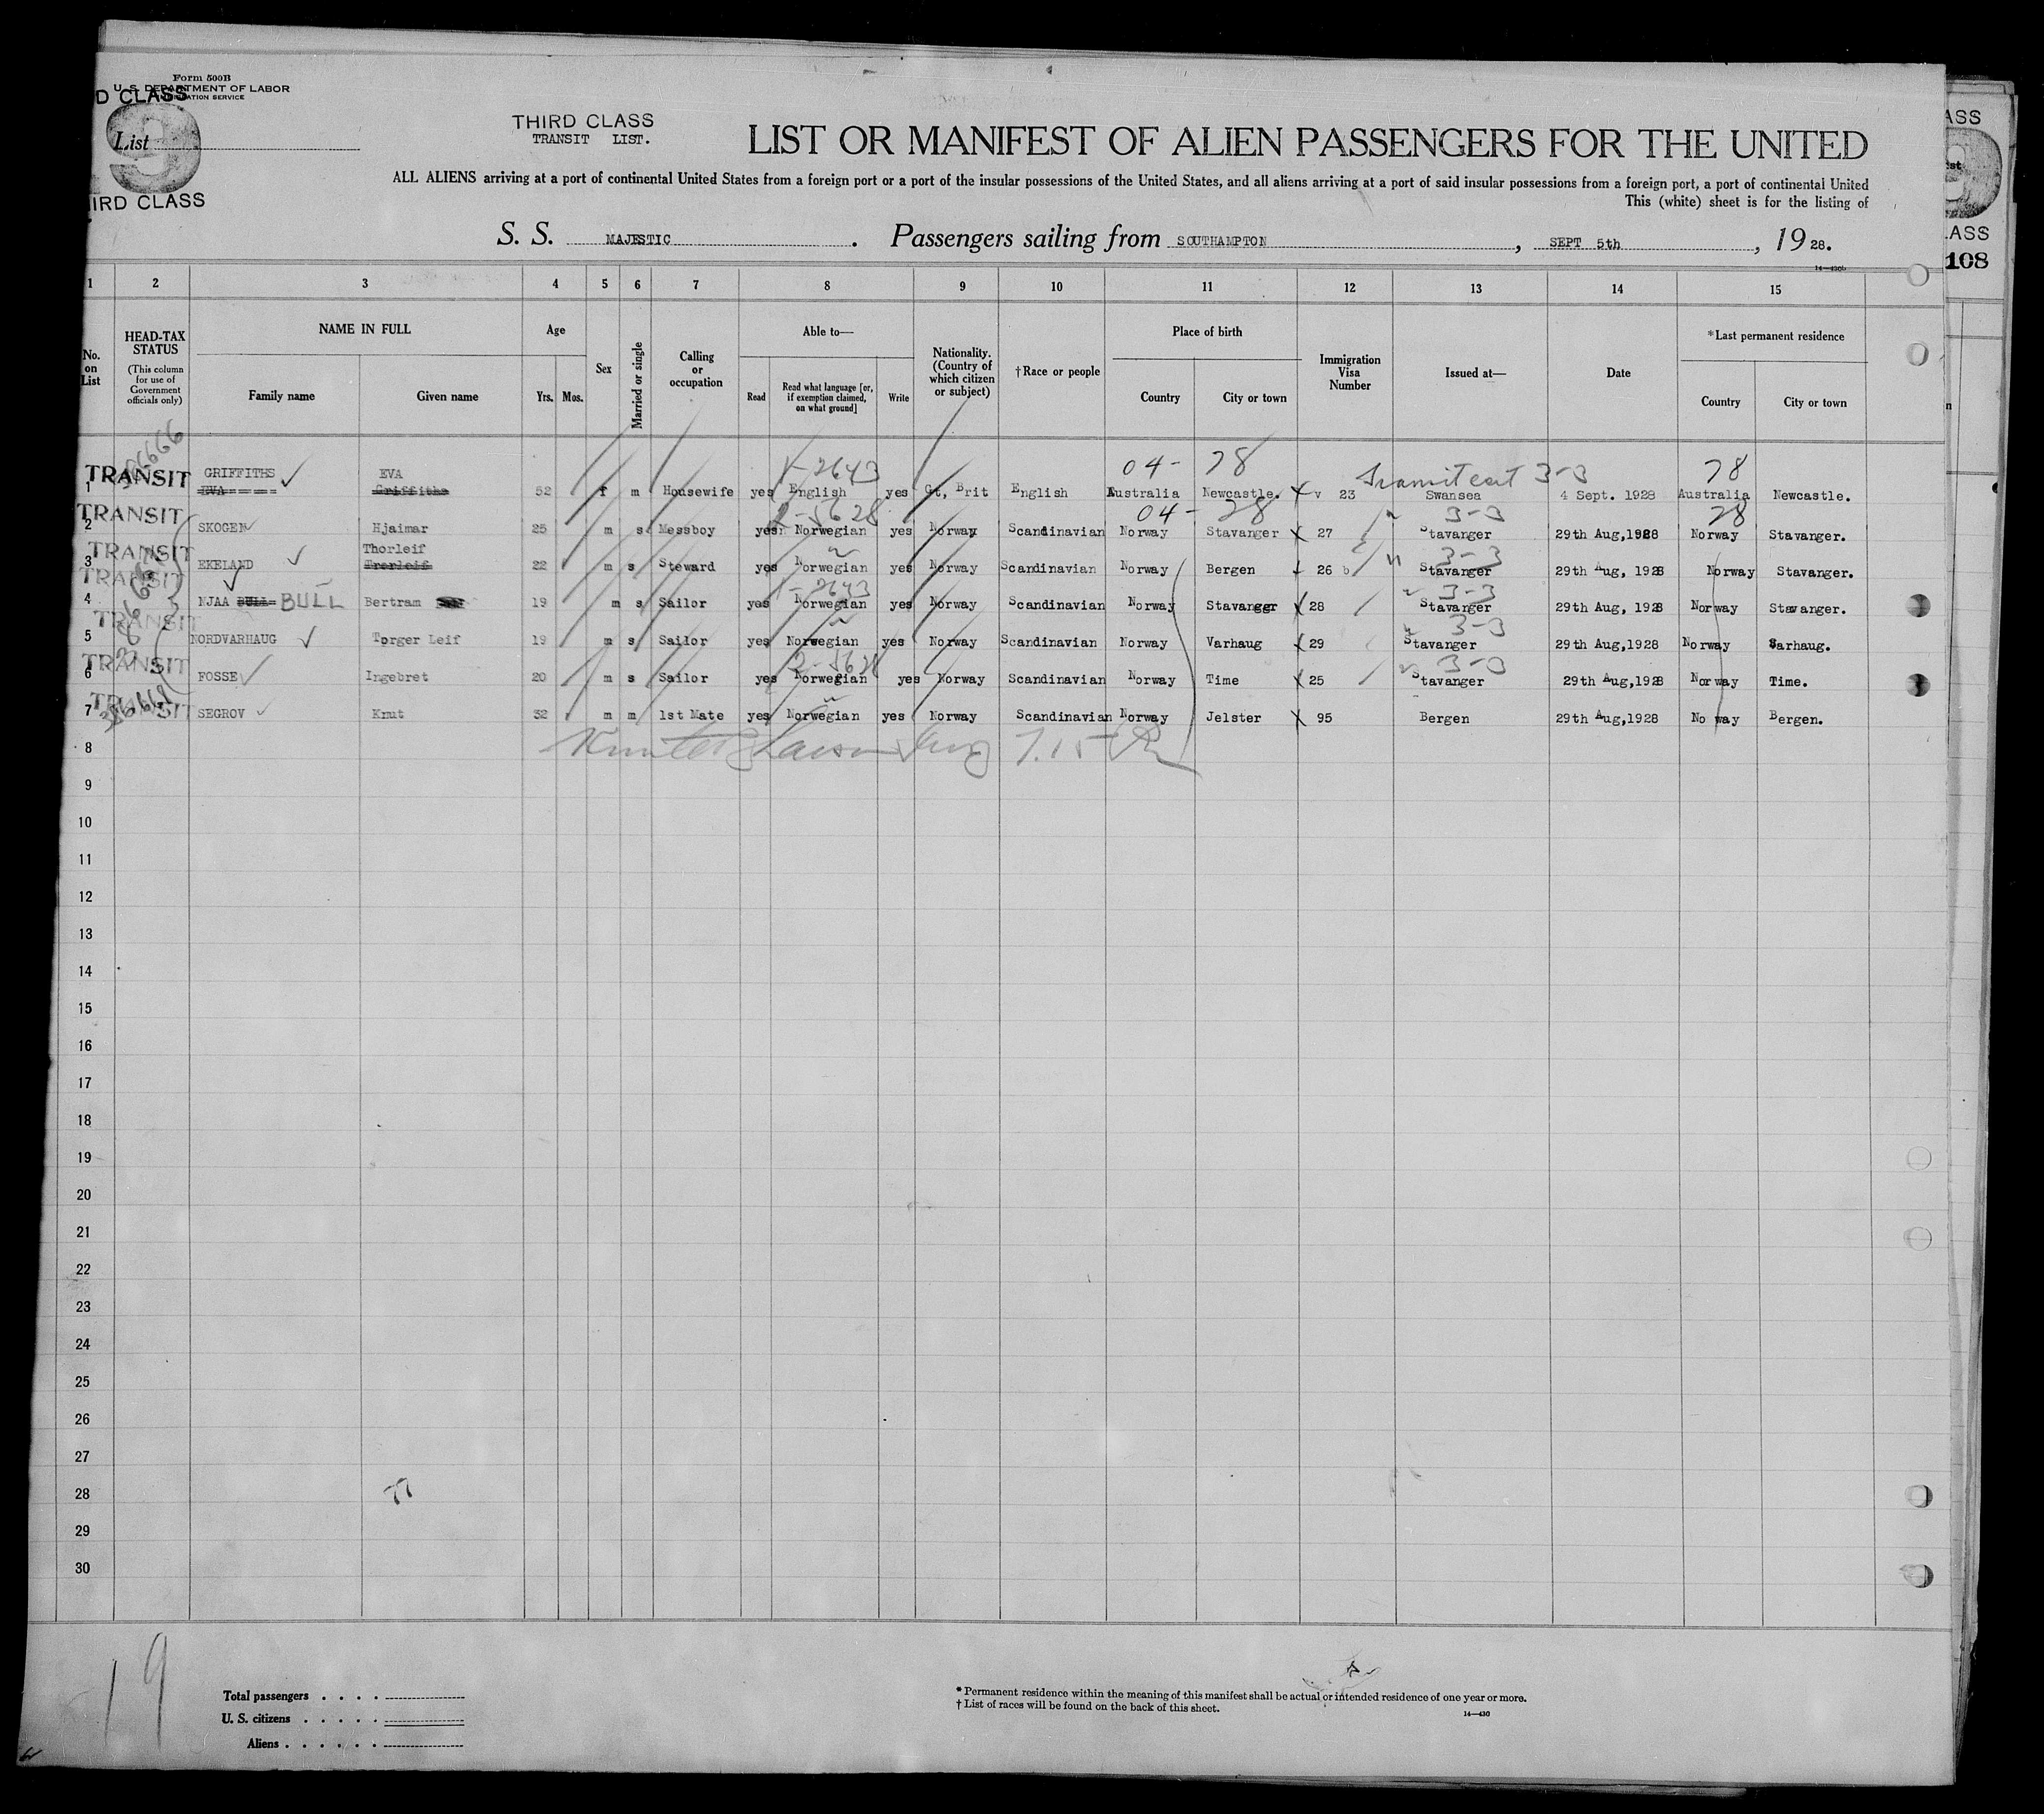 Form 500B
U. S. DEPARTMENT OF LABOR
D CLASS
List
9
IRD CLASS
THIRD CLASS
TRANSIT LIST.
LIST OR MANIFEST OF ALIEN PASSENGERS FOR THE UNITED
ALL ALIENS arriving at a port of continental United States from a foreign port or a port of the insular possessions of the United States, and all aliens arriving at a port of said insular possessions from a foreign port, a port of continental United
This (white) sheet is for the listing of
S. S. MAJESTIC. Passengers sailing from SOUTHAMPTON, SEPT 5th, 19 28.
ASS
LASS
108
1 2 3 4 5 6 7 8 9 10 11 12 13 14 15
No. on List
HEAD-TAX STATUS
(This column for use of Government officials only)
NAME IN FULL
Family name Given name
Age
Yrs. Mos.
Sex
Married or single
Calling or occupation
Able to—
Read
Read what language [or, if exemption claimed, on what ground]
Write
Nationality. (Country of which citizen or subject)
†Race or people
Place of birth
Country City or town
Immigration Visa Number
Issued at—
Date
*Last permanent residence
Country City or town
04- 78 78
TRANSIT GRIFFITHS EVA
1 EVA Griffiths 52 f m Housewife yes English yes Gt, Brit English Australia Newcastle. v 23 Swansea 4 Sept. 1928 Australia Newcastle.
TRANSIT 04- 28 3-3 28
2 SKOGEN Hjaimar 25 m s Messboy yes Norwegian yes Norway Scandinavian Norway Stavanger 27 Stavanger 29th Aug,1928 Norway Stavanger.
TRANSIT Thorleif 3-3
3 EKELAND 22 m s Steward yes Norwegian yes Norway Scandinavian Norway Bergen 26 Stavanger 29th Aug, 1928 Norway Stavanger.
TRANSIT 3-3
4 NJAA BULL BULL Bertram 19 m s Sailor yes Norwegian yes Norway Scandinavian Norway Stavanger 28 Stavanger 29th Aug, 1928 Norway Stavanger.
TRANSIT 3-3
5 NORDVARHAUG Torger Leif 19 m s Sailor yes Norwegian yes Norway Scandinavian Norway Varhaug 29 Stavanger 29th Aug,1928 Norway Sarhaug.
TRANSIT 3-3
6 FOSSE Ingebret 20 m s Sailor yes Norwegian yes Norway Scandinavian Norway Time 25 Stavanger 29th Aug,1928 Norway Time.
TRANSIT
7 SEGROV Knut 32 m m 1st Mate yes Norwegian yes Norway Scandinavian Norway Jelster 95 Bergen 29th Aug,1928 No way Bergen.
8
9
10
11
12
13
14
15
16
17
18
19
20
21
22
23
24
25
26
27
28
29
30
77
19
Total passengers
U. S. citizens
Aliens
* Permanent residence within the meaning of this manifest shall be actual or intended residence of one year or more.
† List of races will be found on the back of this sheet.
14—430